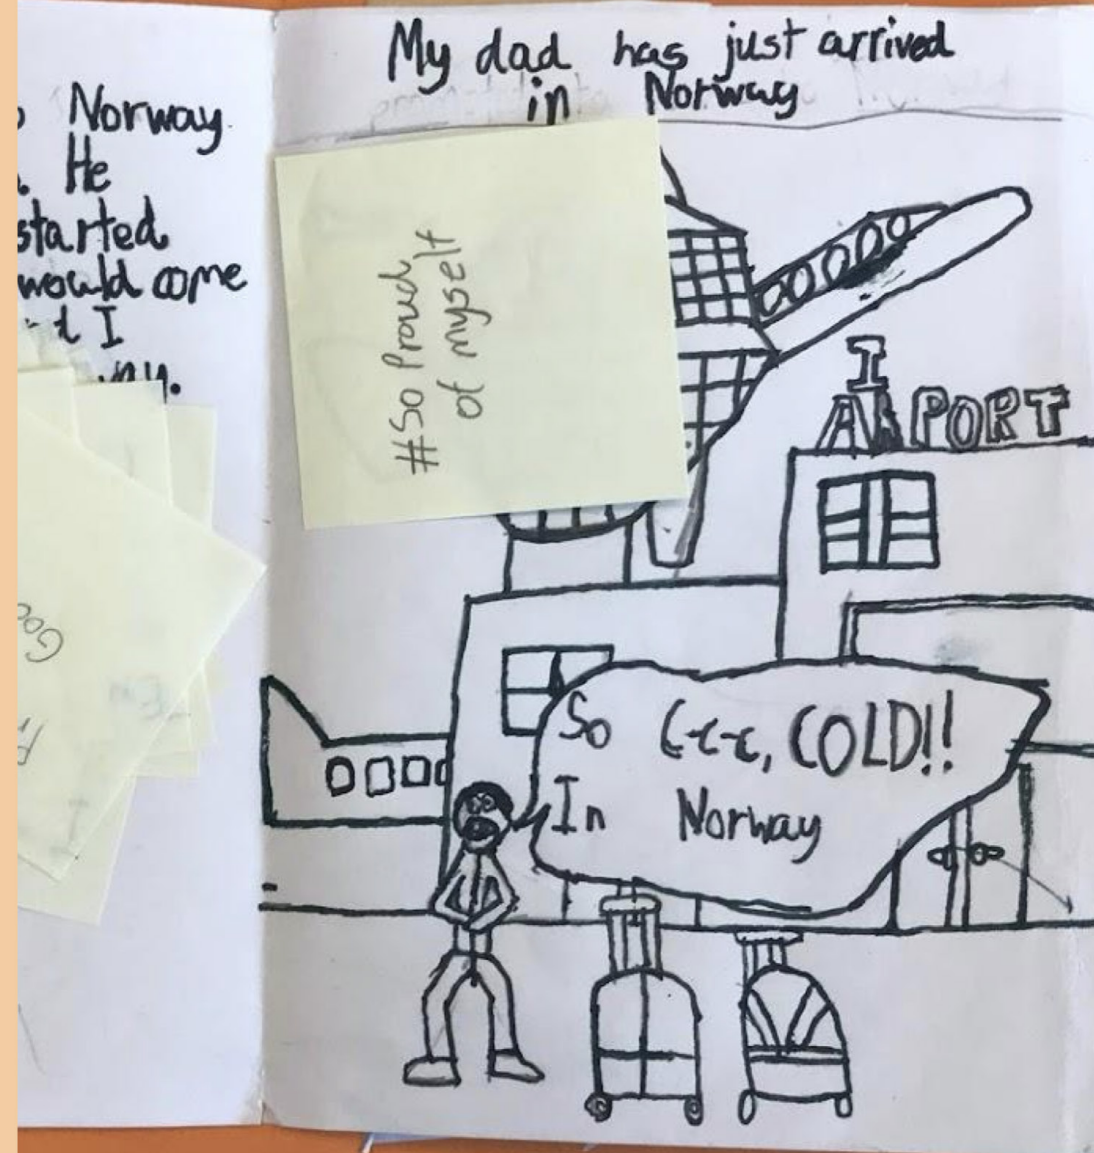 Norway
He
started
would come
I
My dad has just arrived
in Norway
#So Proud
of myself
AIRPORT
So C-c-c, COLD!!
In Norway